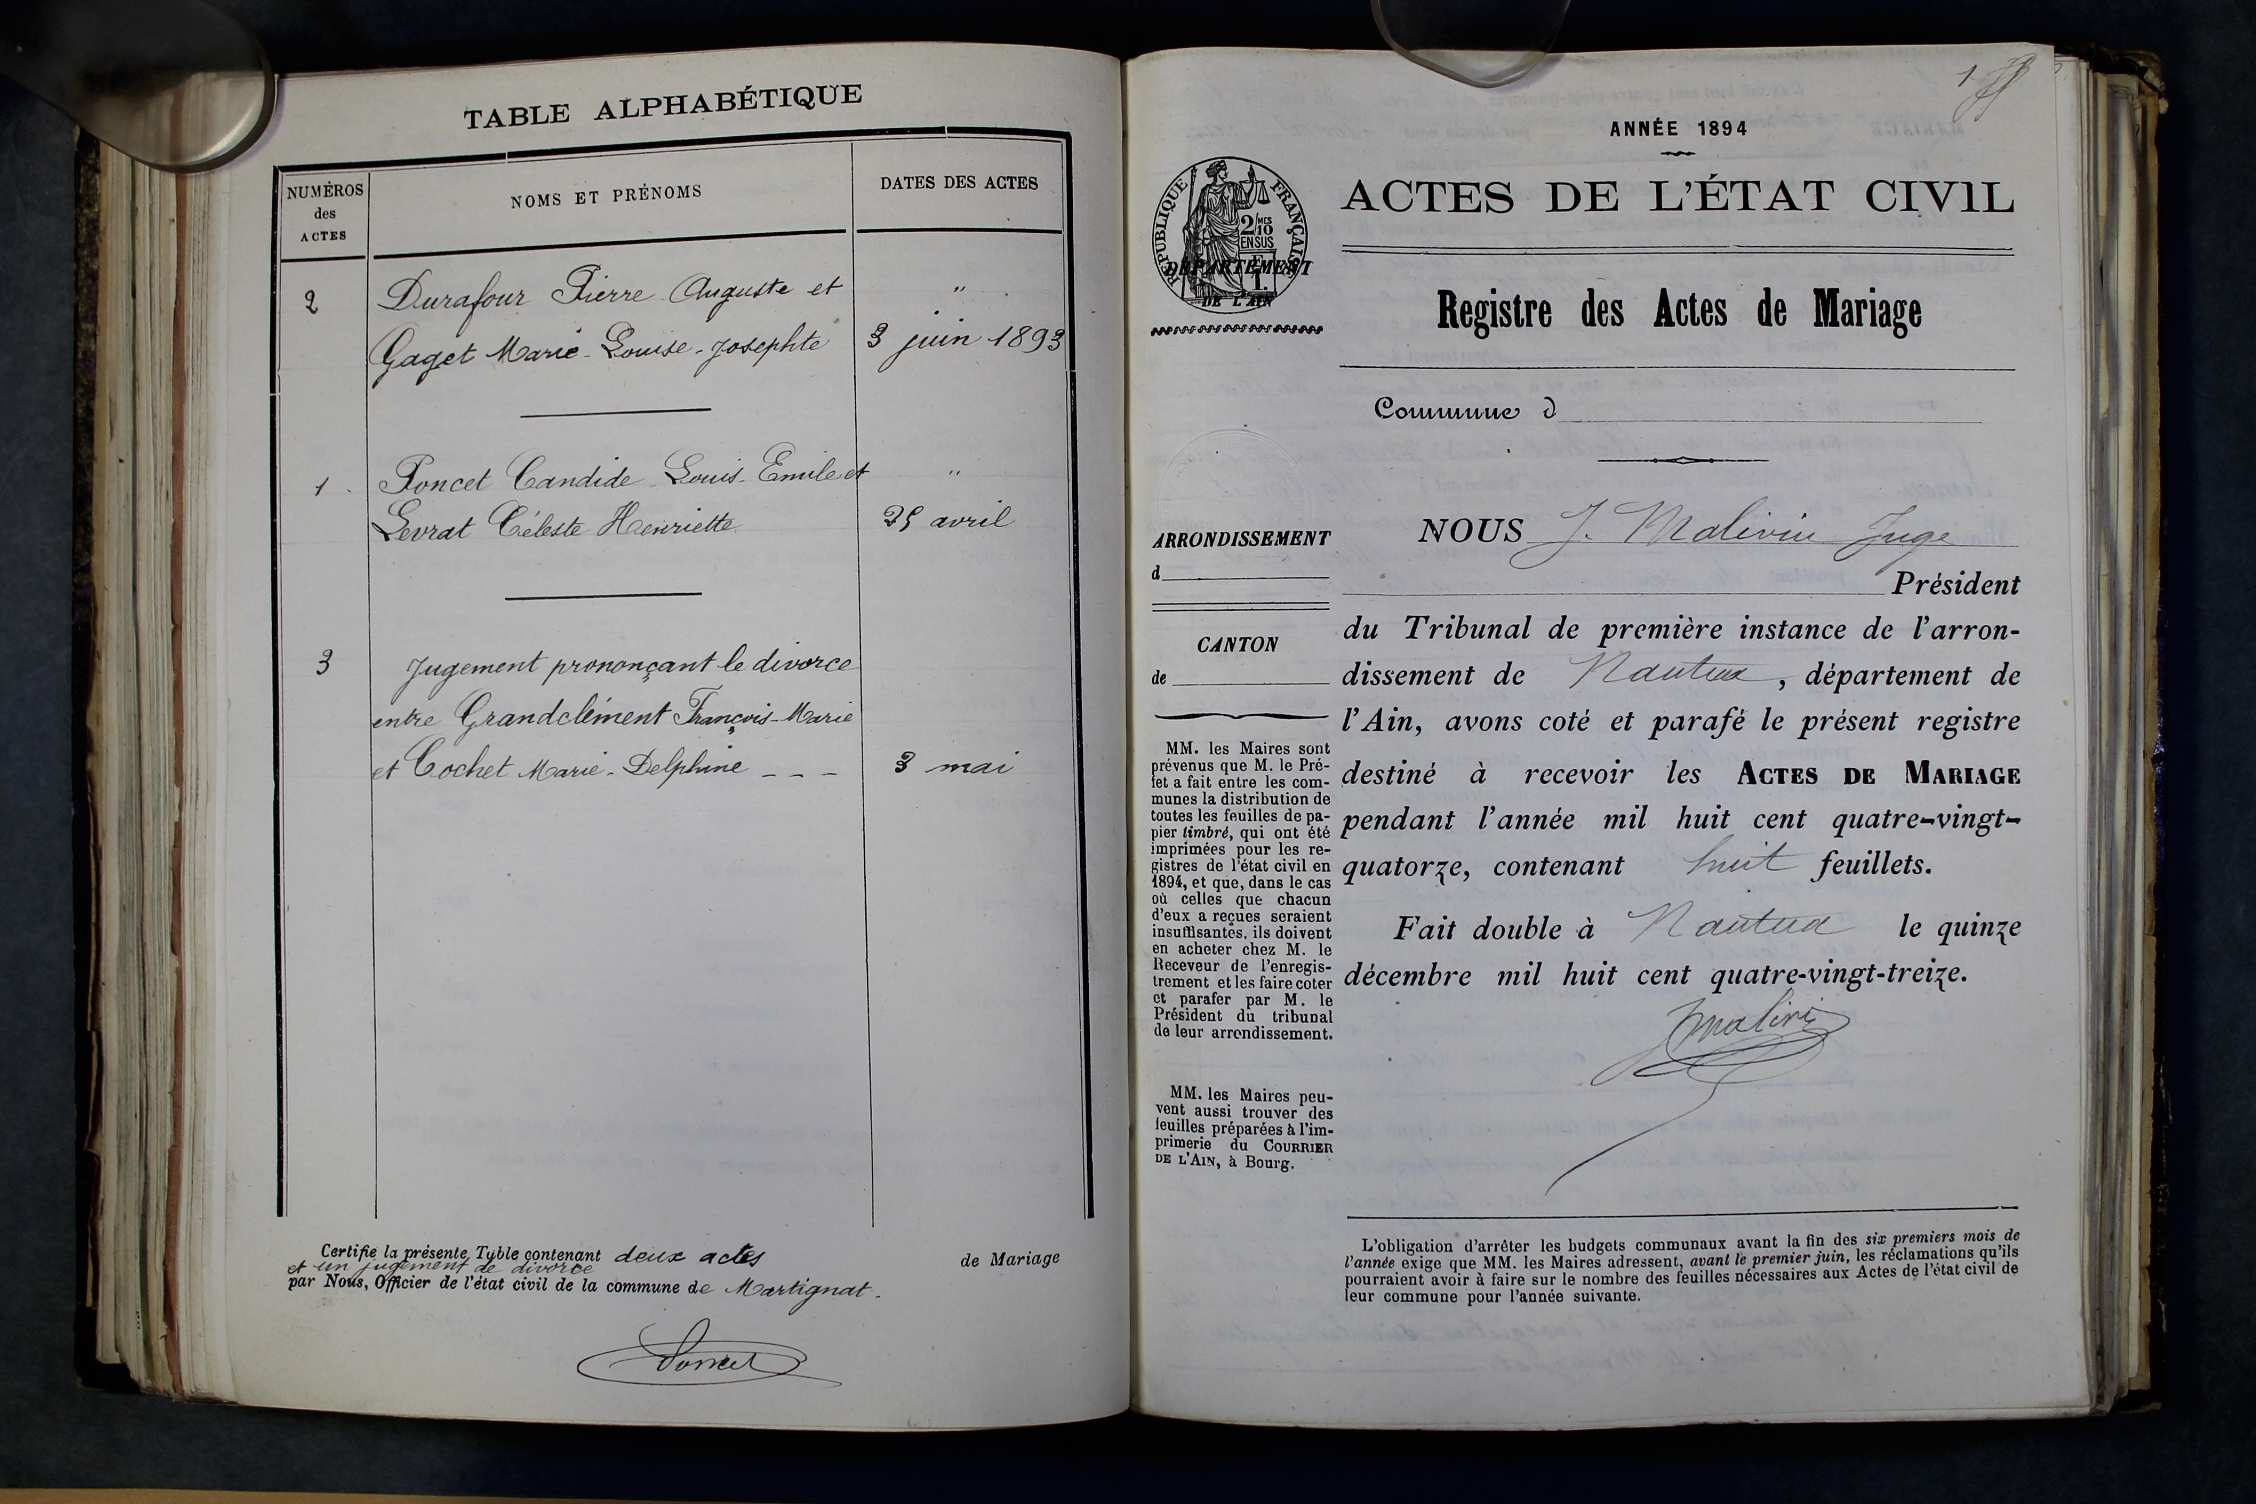 TABLE ALPHABÉTIQUE
NUMÉROS
des
ACTES
NOMS ET PRÉNOMS
DATES DES ACTES
2 Durafour Pierre Auguste et "
Gaget Marie-Louise-Josephte 3 juin 1893
1 Poncet Candide Louis Emile et "
Levrat Céleste Henriette 25 avril
3 Jugement prononçant le divorce
entre Grandclément François-Marie
et Cochet Marie-Delphine - - - 3 mai
Certifie la présente Table contenant deux actes de Mariage
et un jugement de divorce
par Nous, Officier de l'état civil de la commune de Martignat.
Poncet
1
ANNÉE 1894
RÉPUBLIQUE FRANÇAISE
2/10
MES
EN SUS
DÉPARTEMENT
DE L'AIN
ACTES DE L'ÉTAT CIVIL
Registre des Actes de Mariage
Commune d
ARRONDISSEMENT
d
CANTON
de
MM. les Maires sont
prévenus que M. le Pré-
fet a fait entre les com-
munes la distribution de
toutes les feuilles de pa-
pier timbré, qui ont été
imprimées pour les re-
gistres de l'état civil en
1894, et que, dans le cas
où celles que chacun
d'eux a reçues seraient
insuffisantes, ils doivent
en acheter chez M. le
Receveur de l'enregis-
trement et les faire coter
et parafer par M. le
Président du tribunal
de leur arrondissement.
MM. les Maires peu-
vent aussi trouver des
feuilles préparées à l'im-
primerie du COURRIER
DE L'AIN, à Bourg.
NOUS J. Malivin Juge
Président
du Tribunal de première instance de l'arron-
dissement de Nantua, département de
l'Ain, avons coté et parafé le présent registre
destiné à recevoir les ACTES DE MARIAGE
pendant l'année mil huit cent quatre-vingt-
quatorze, contenant huit feuillets.
Fait double à Nantua le quinze
décembre mil huit cent quatre-vingt-treize.
L'obligation d'arrêter les budgets communaux avant la fin des six premiers mois de
l'année exige que MM. les Maires adressent, avant le premier juin, les réclamations qu'ils
pourraient avoir à faire sur le nombre des feuilles nécessaires aux Actes de l'état civil de
leur commune pour l'année suivante.